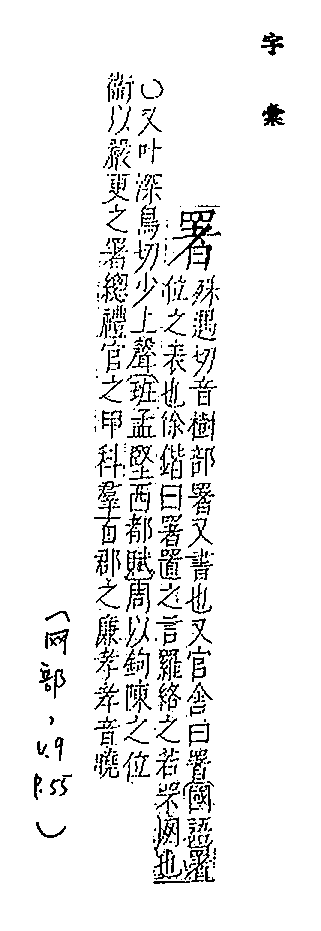 字彙
署
殊遇切音樹部署又書也又官舍曰署國語署
位之表也徐鍇曰署置之言羅絡之若罘網也
○又叶深鳥切少上聲班孟堅西都賦周以鉤陳之位
衞以嚴更之署總禮官之甲科羣百郡之廉孝孝音曉
(网部, v.9
p.55)